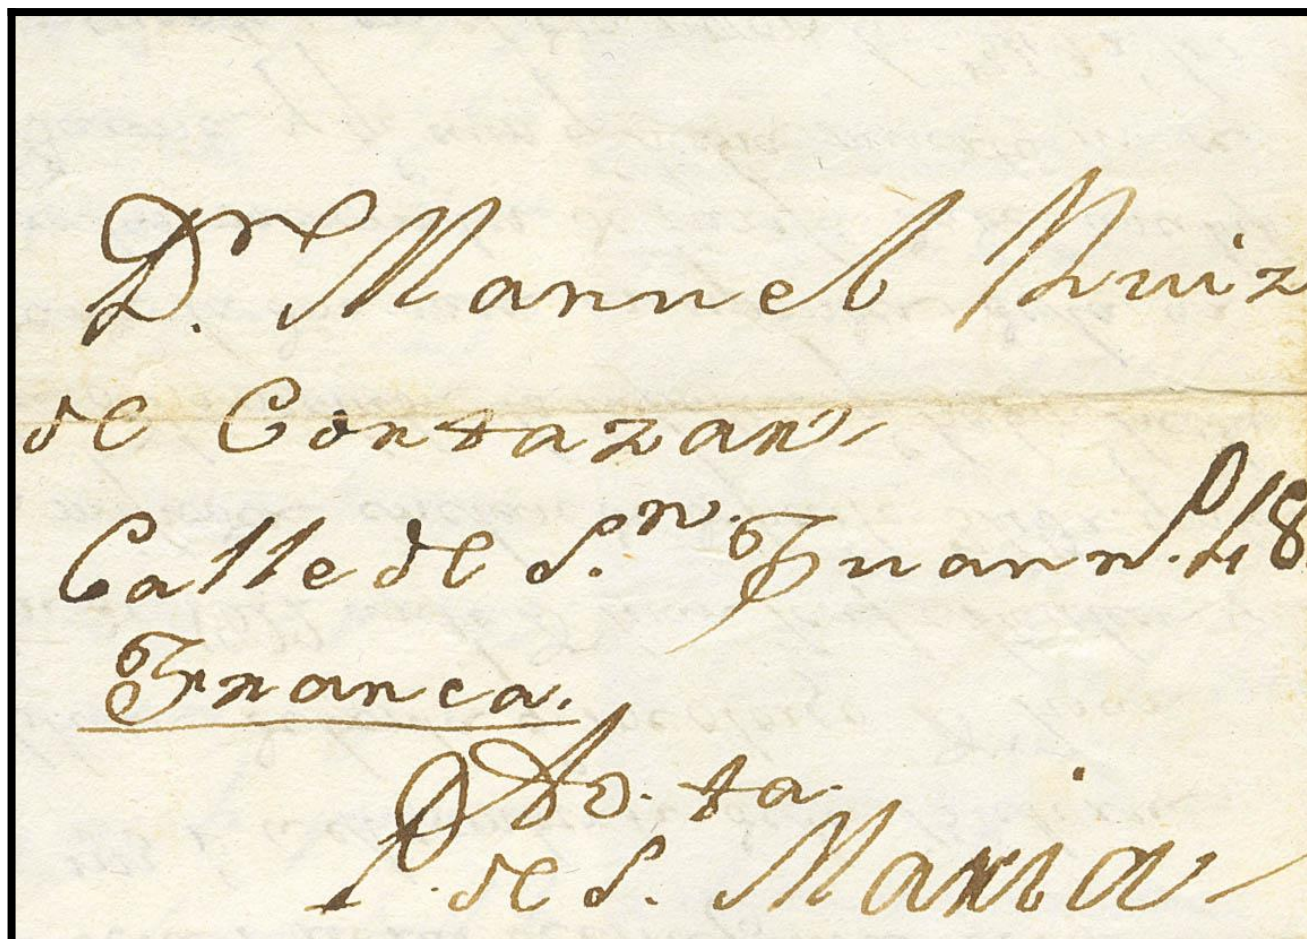 Dn. Manuel Ruiz
de Cortazar
Calle de Sn. Juan no. 48
Franca.
Pto. ta
de S. Maria